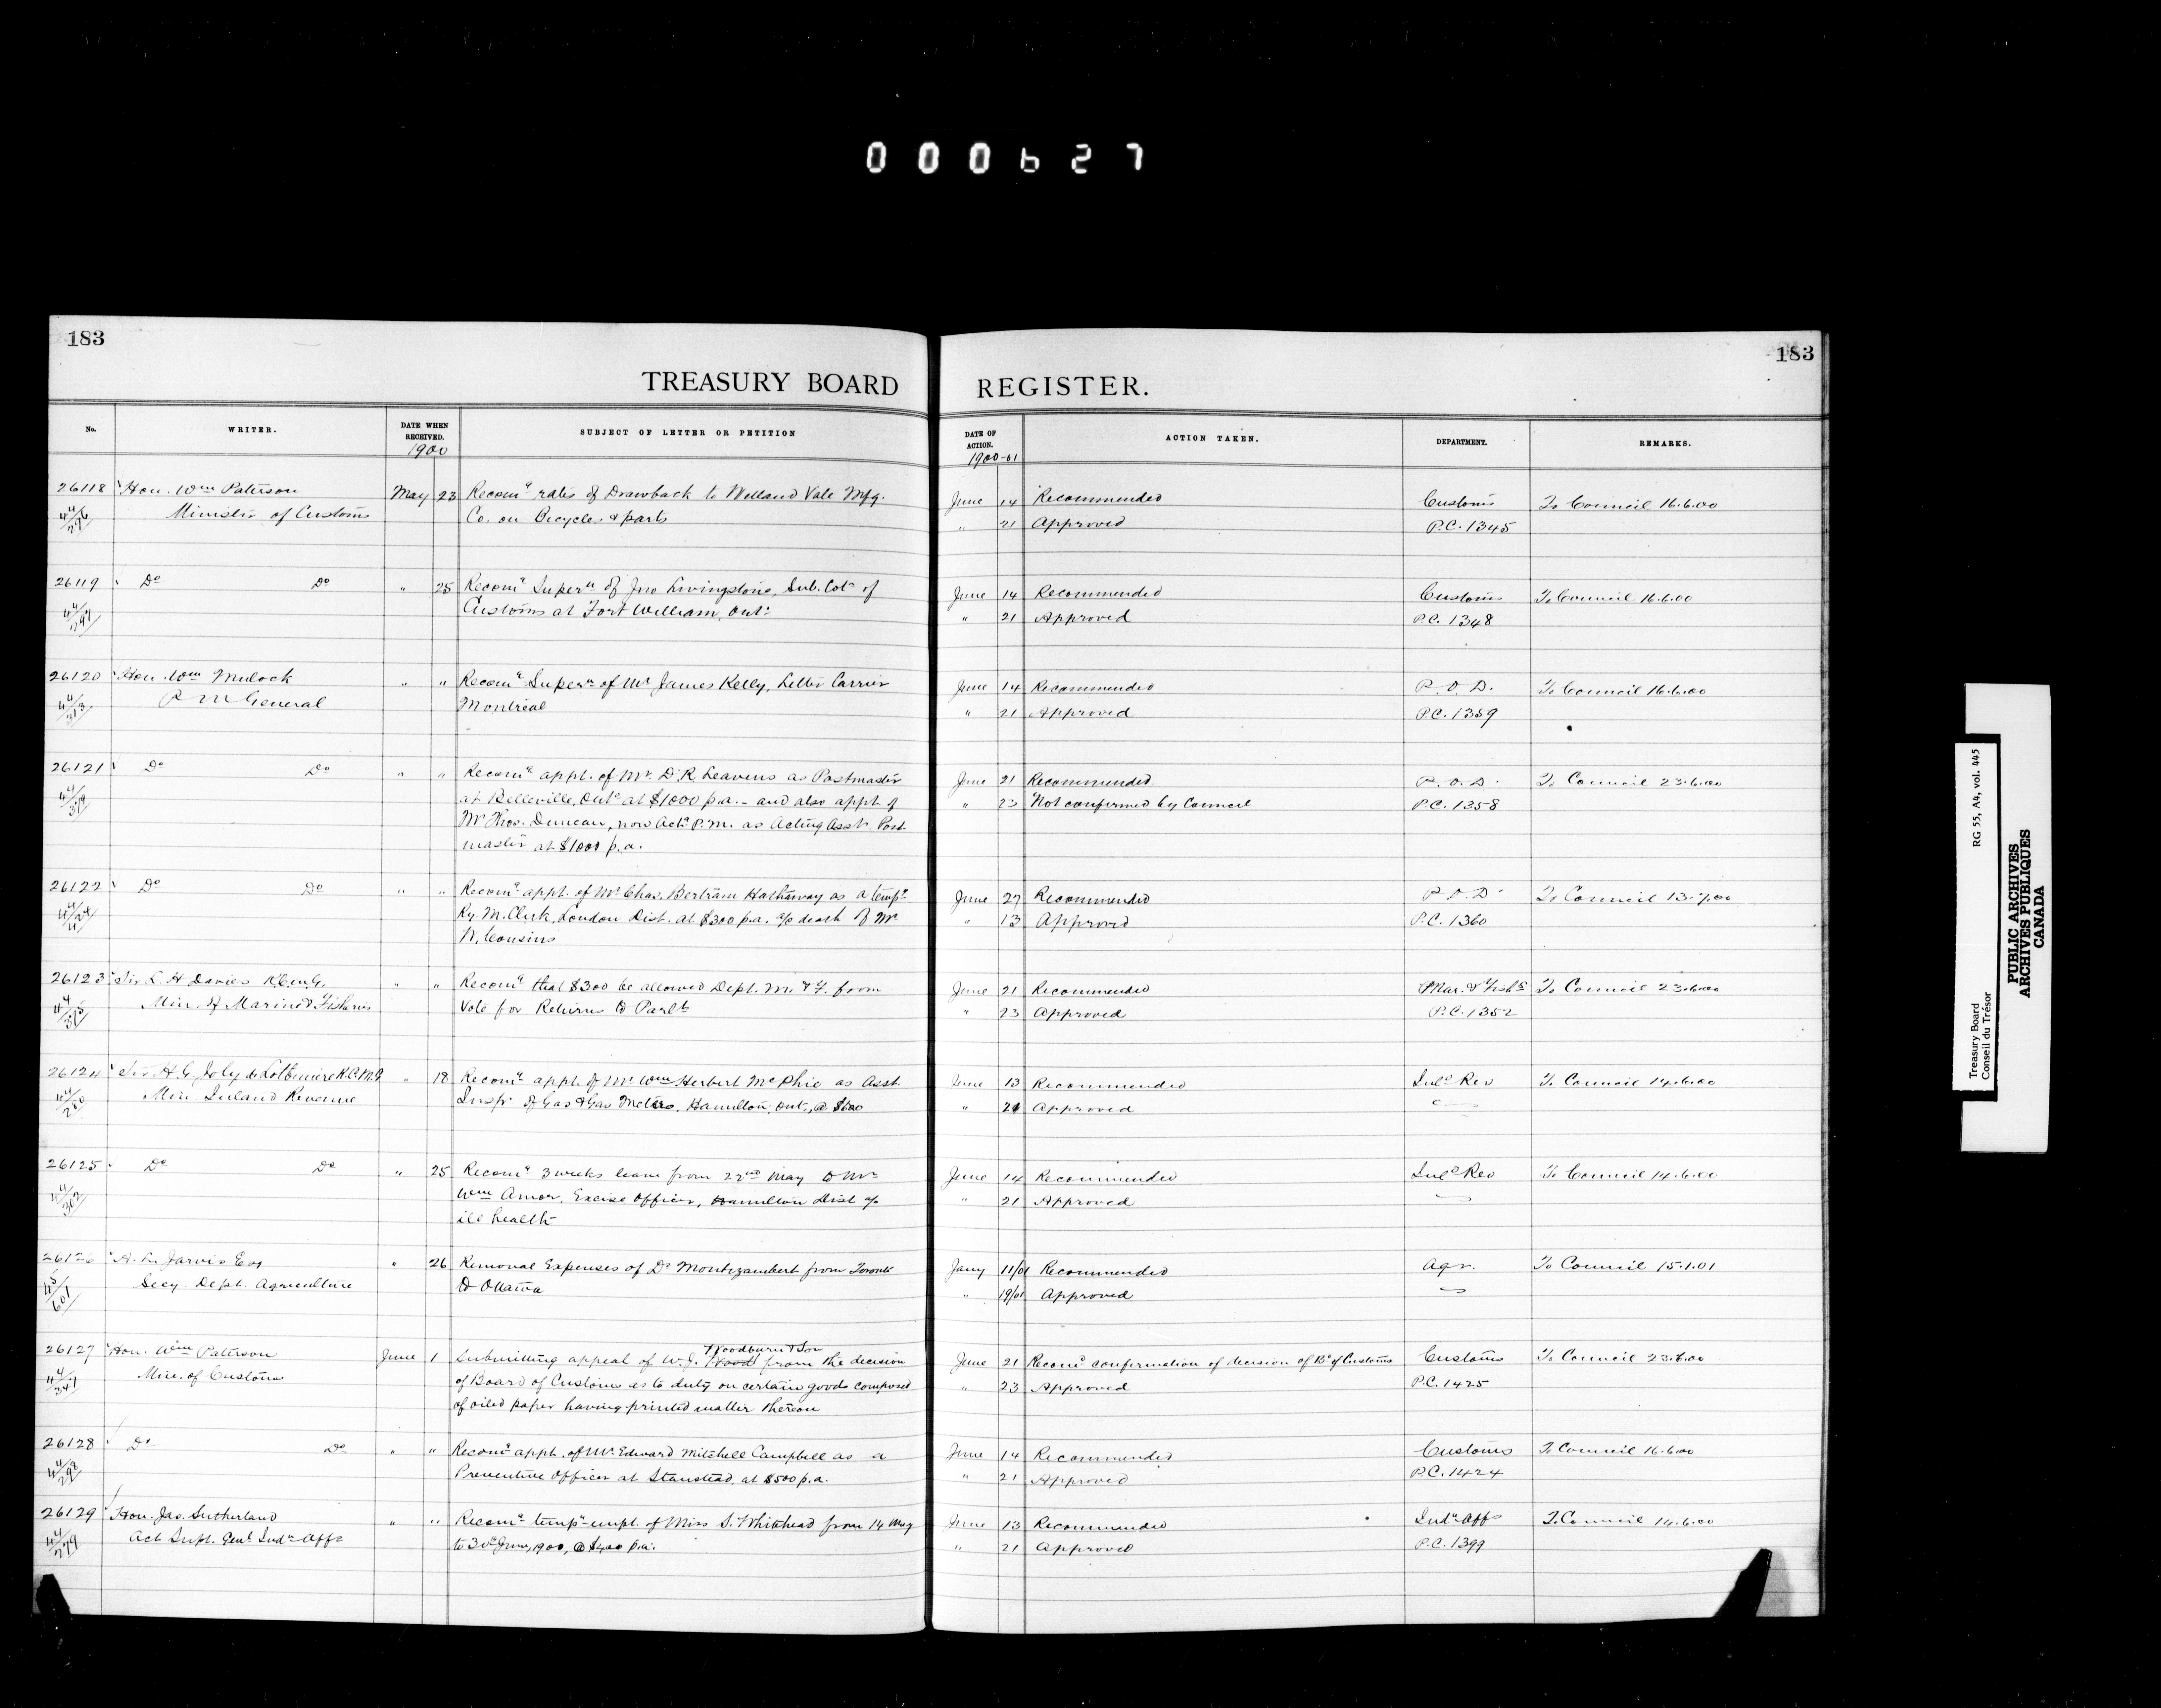 000627
183
183
TREASURY BOARD REGISTER.
No.
WRITER.
DATE WHEN RECEIVED.
1900
SUBJECT OF LETTER OR PETITION
DATE OF ACTION.
1900-01
ACTION TAKEN.
DEPARTMENT.
REMARKS.
26118 Hon. Wm Paterson May 23 Recomg rates of Drawback to Welland Vale Mfg. June 14 Recommended Customs To Council 16.6.00
44/296 Minister of Customs Co. on Bicycles & parts " 21 Approved P.C. 1345
26119 Do Do " 25 Recomg Supern of Jno Livingstone, Sub. Colr of June 14 Recommended Customs To Council 16.6.00
Customs at Fort William, Ont. " 21 Approved P.C. 1348
26120 Hon. Wm Mulock " " Recomg Supern of Mr James Kelly, Letter Carrier June 14 Recommended P.O.D. To Council 16.6.00
44/313 P M General Montreal " 21 Approved P.C. 1359
26121 Do Do " " Recomg appt. of Mr. D. R. Leavens as Postmaster June 21 Recommended P.O.D. To Council 23.6.00
at Belleville, Onto at $1000 p.a. - and also appt. of " 23 Not confirmed by Council P.C. 1358
Mr Thos. Duncan, now Actg P.M. as Acting Asst. Post
master at $1000 p.a.
26122 Do Do " " Recomg appt. of Mr Chas. Bertram Hathaway as a tempy June 27 Recommended P.O.D. To Council 13.7.00
Ry. M. Clerk, London Dist. at $300 p.a. a/o death of Mr " 13 Approved P.C. 1360
N. Cousins
26123 Sir L H Davies K.C.M.G. " " Recomg that $300 be allowed Dept. M. & F. from June 21 Recommended Mar. & Fishs To Council 23.6.00
44/315 Min. of Marine & Fisheries Vote for Returns to Parlt " 23 Approved P.C. 1352
26124 Sir H. G. Joly de Lotbiniere K.C.M.G " 18 Recomg appt. of Mr Wm Herbert McPhie as Asst. June 13 Recommended Inld Rev To Council 14.6.00
Min. Inland Revenue Inspr of Gas & Gas Meters, Hamilton, Ont., @ $600 " 21 Approved
26125 Do Do " 25 Recomg 3 weeks leave from 22nd May to Mr June 14 Recommended Inld Rev To Council 14.6.00
Wm Amor, Excise Officer, Hamilton Dist a/o " 21 Approved
ill health
26126 A. L. Jarvis Esq " 26 Removal Expenses of Dr Montizambert from Toronto Jany 11/01 Recommended Agr. To Council 15.1.01
45/601 Secy Dept. Agriculture to Ottawa " 19/01 Approved
26127 Hon. Wm Paterson June 1 Submitting appeal of W. J. Woodburn & Son from the decision June 21 Recomg confirmation of decision of Bd of Customs Customs To Council 23.6.00
44/341 Min. of Customs of Board of Customs as to duty on certain goods composed " 23 Approved P.C. 1425
of oiled paper having printed matter thereon
26128 Do Do " " Recomg appt. of Mr Edward Mitchell Campbell as a June 14 Recommended Customs To Council 16.6.00
Preventive Officer at Stanstead, at $500 p.a. " 21 Approved P.C. 1424
26129 Hon. Jas. Sutherland " " Recomg tempy empt. of Miss S. Whitehead from 14 May June 13 Recommended Indn Affs To Council 14.6.00
44/279 Act Supt. Genl Indn Affs to 30th June, 1900, @ $400 p.a. " 21 Approved P.C. 1399
Treasury Board
Conseil du Trésor
RG 55, A4, vol. 445
PUBLIC ARCHIVES
ARCHIVES PUBLIQUES
CANADA